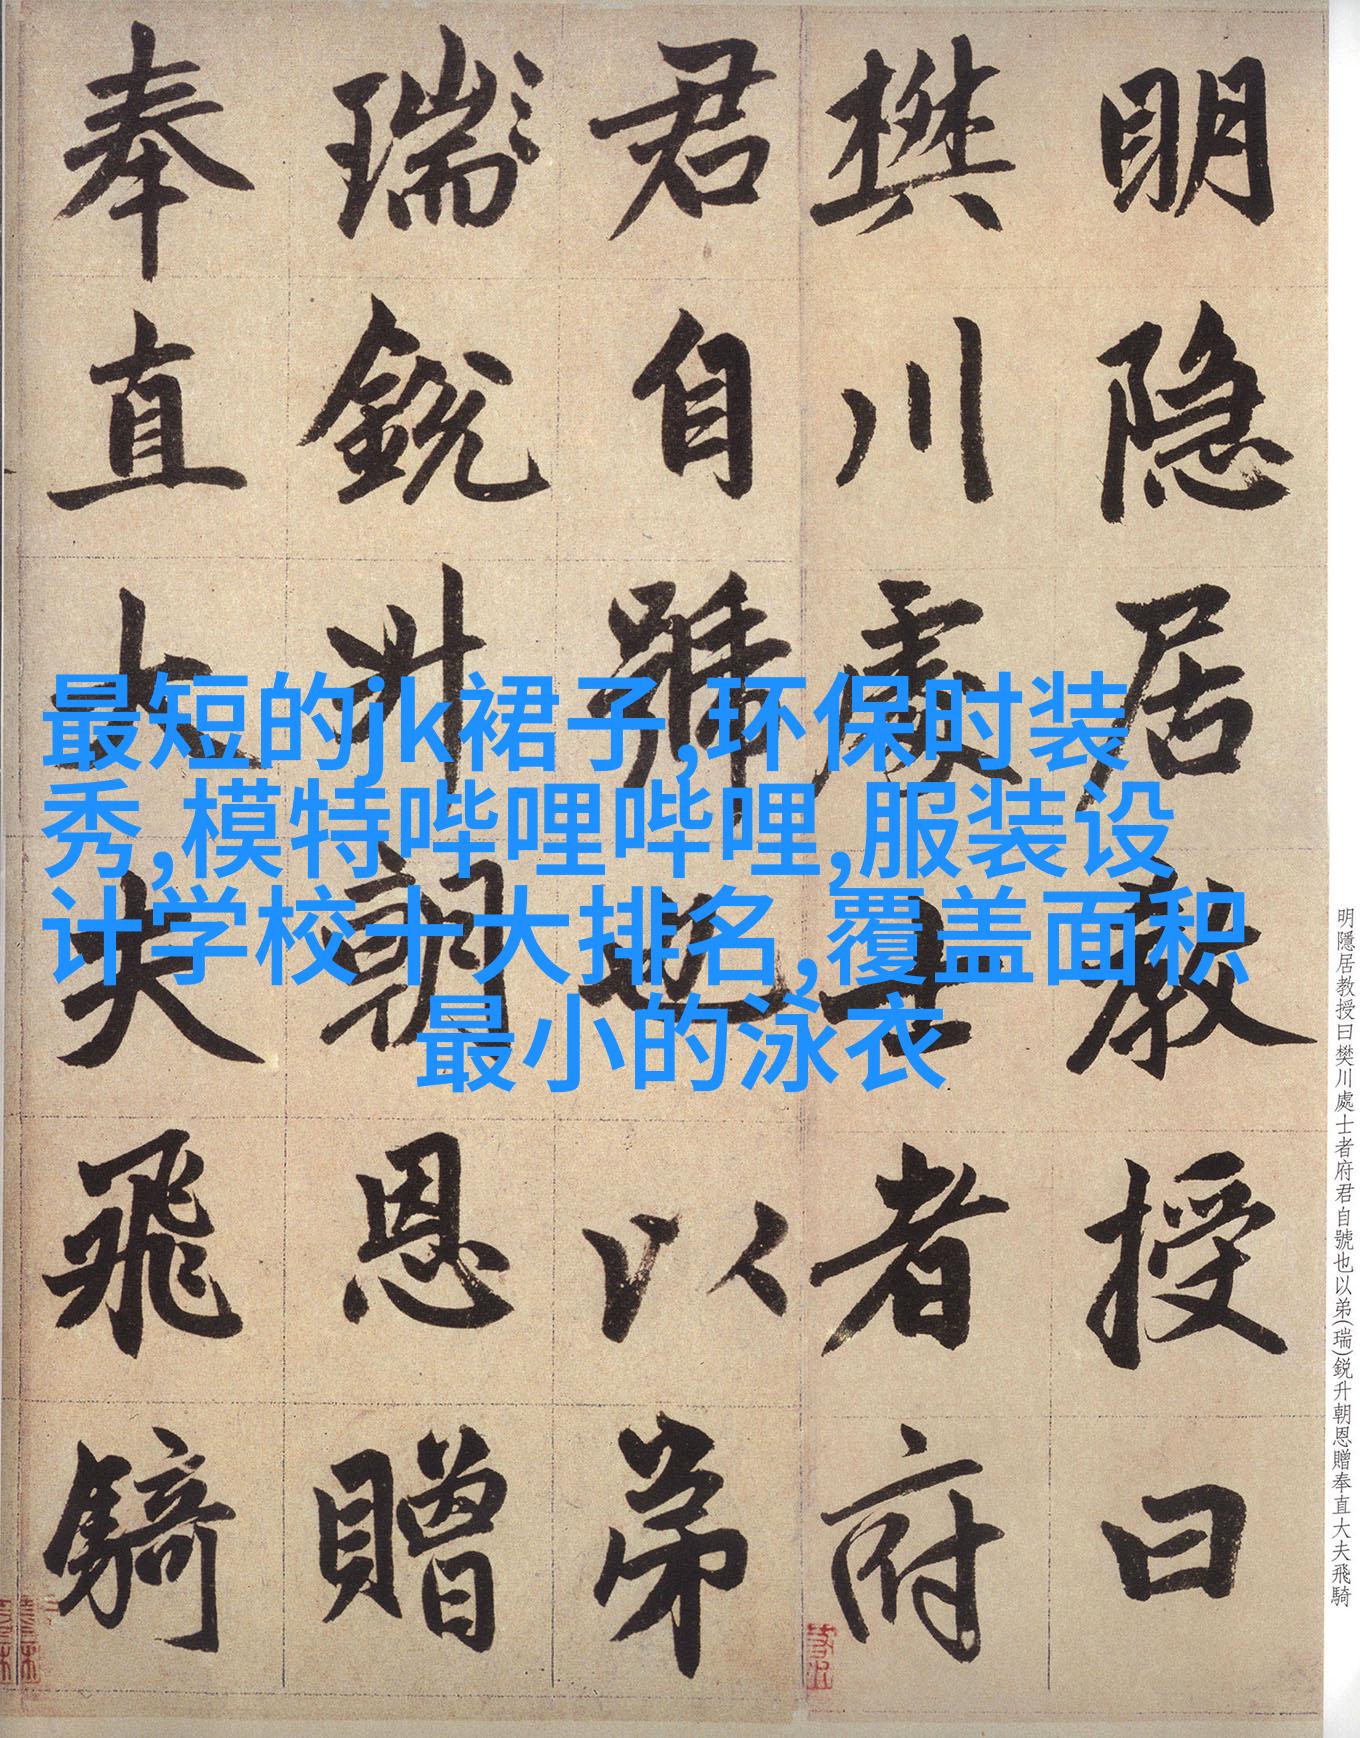 明隱居教授曰
樊川處士者府
君自號也以弟
瑞鋭升朝恩贈
奉直大夫飛騎
最短的jk裙子,环保时装
秀,模特哔哩哔哩,服装设
计学校十大排名,覆盖面积
最小的泳衣
明隱居教授曰樊川處士者府君自號也以弟(瑞)鋭升朝恩贈奉直大夫飛騎